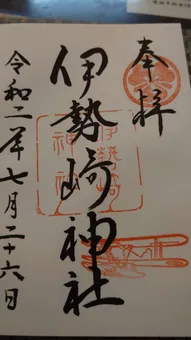 奉拝
伊勢崎神社
令和二年七月二十六日